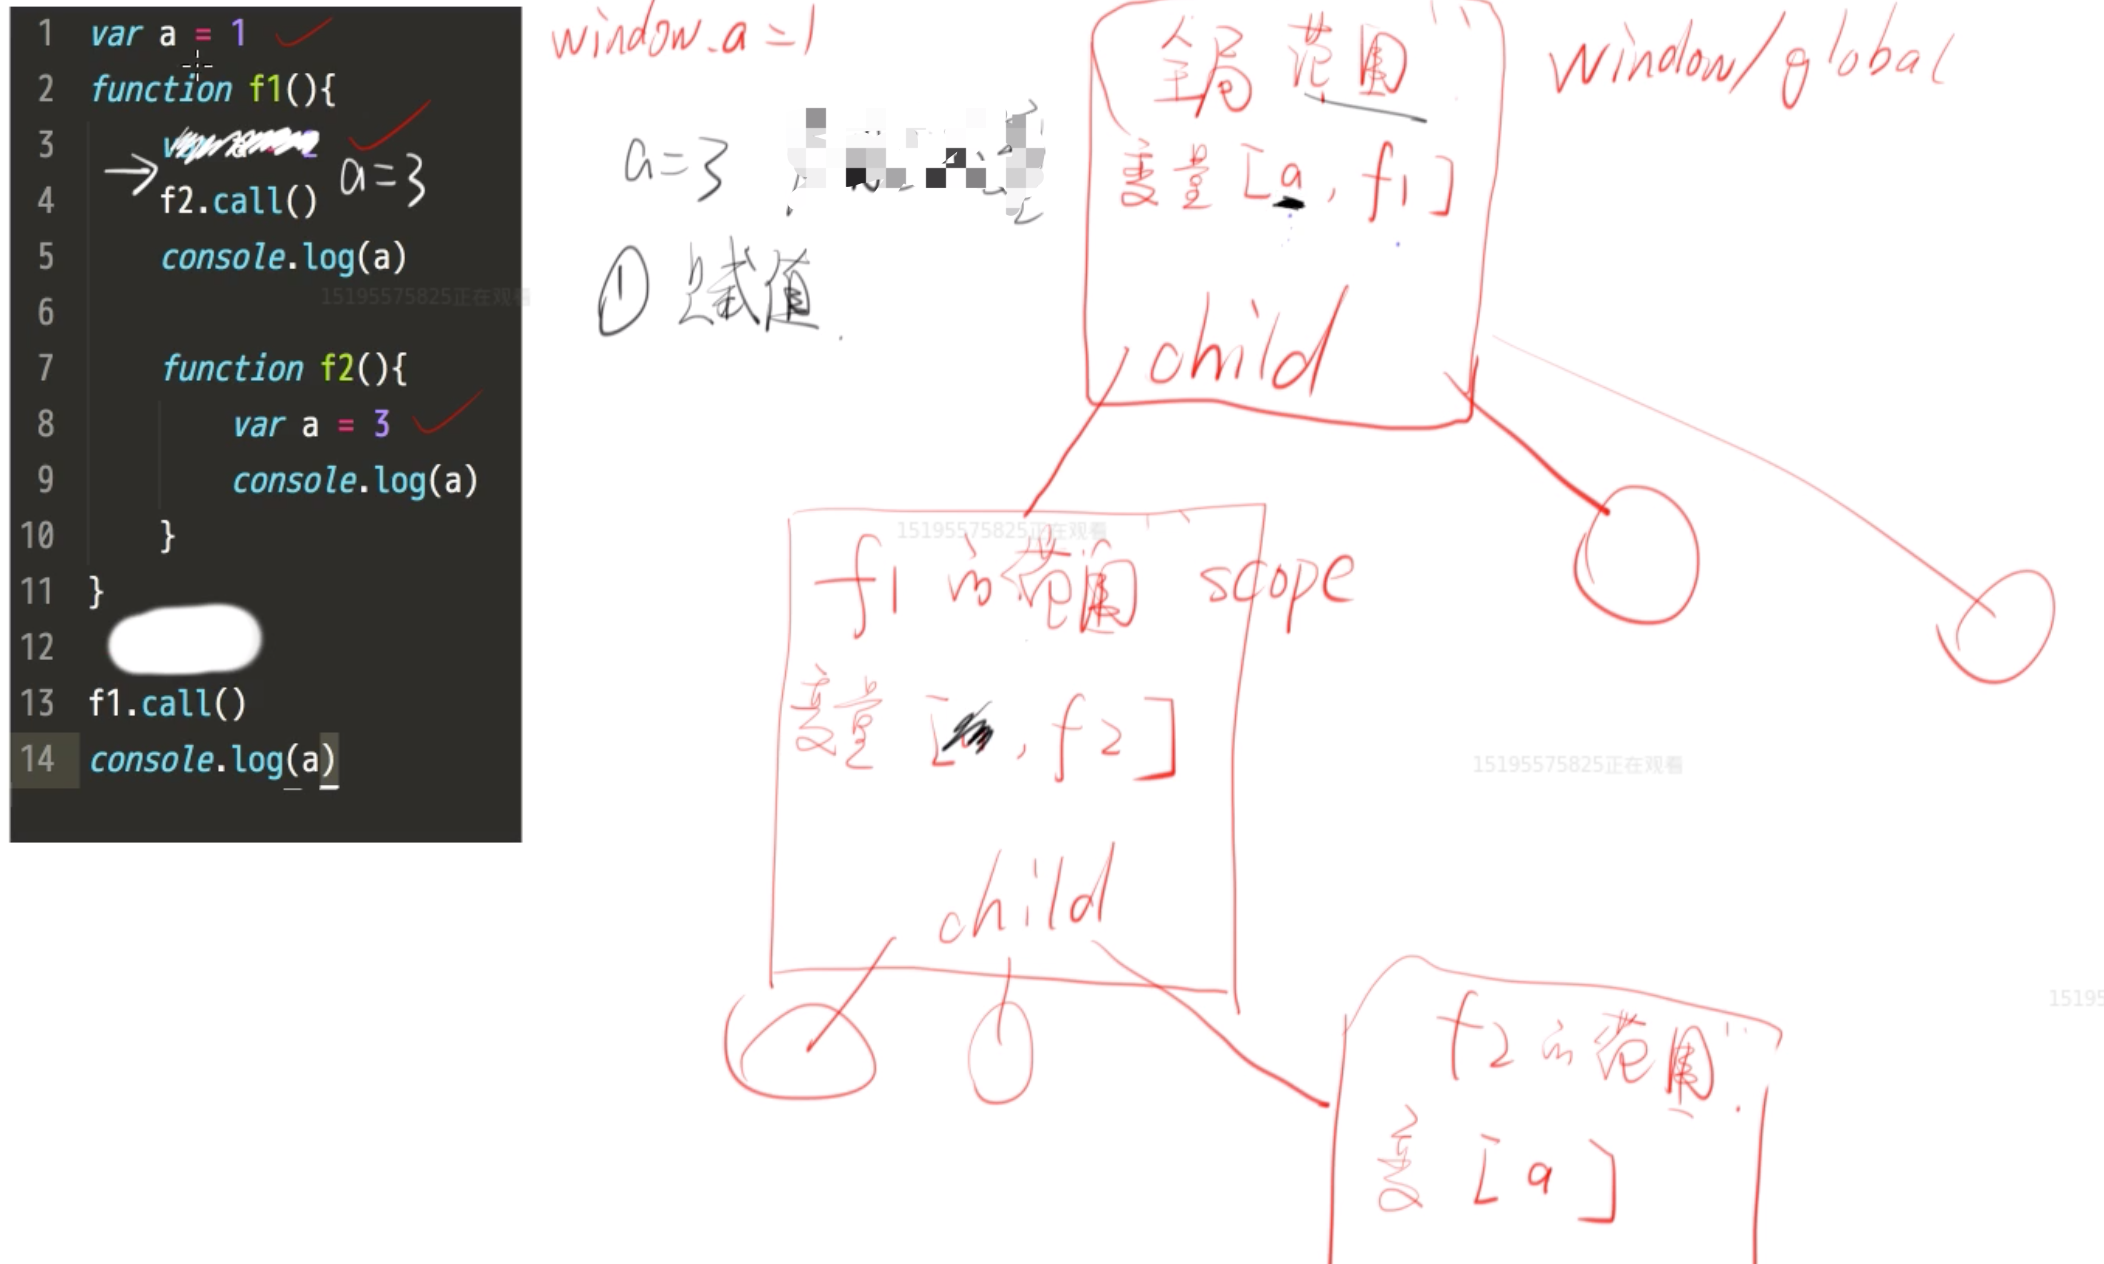 1 var a = 1
2 function f1(){
3
a=3
4 f2.call()
5 console.log(a)
15195575825正在观看
6
7 function f2(){
8 var a = 3
9 console.log(a)
10 }
11 }
12
13 f1.call()
14 console.log(a)
window.a=1
a=3
① 赋值
全局范围
window/global
变量[a, f1]
child
15195575825正在观看
f1的范围 scope
变量[ , f2]
child
15195575825正在观看
15195
f2的范围
变[a]